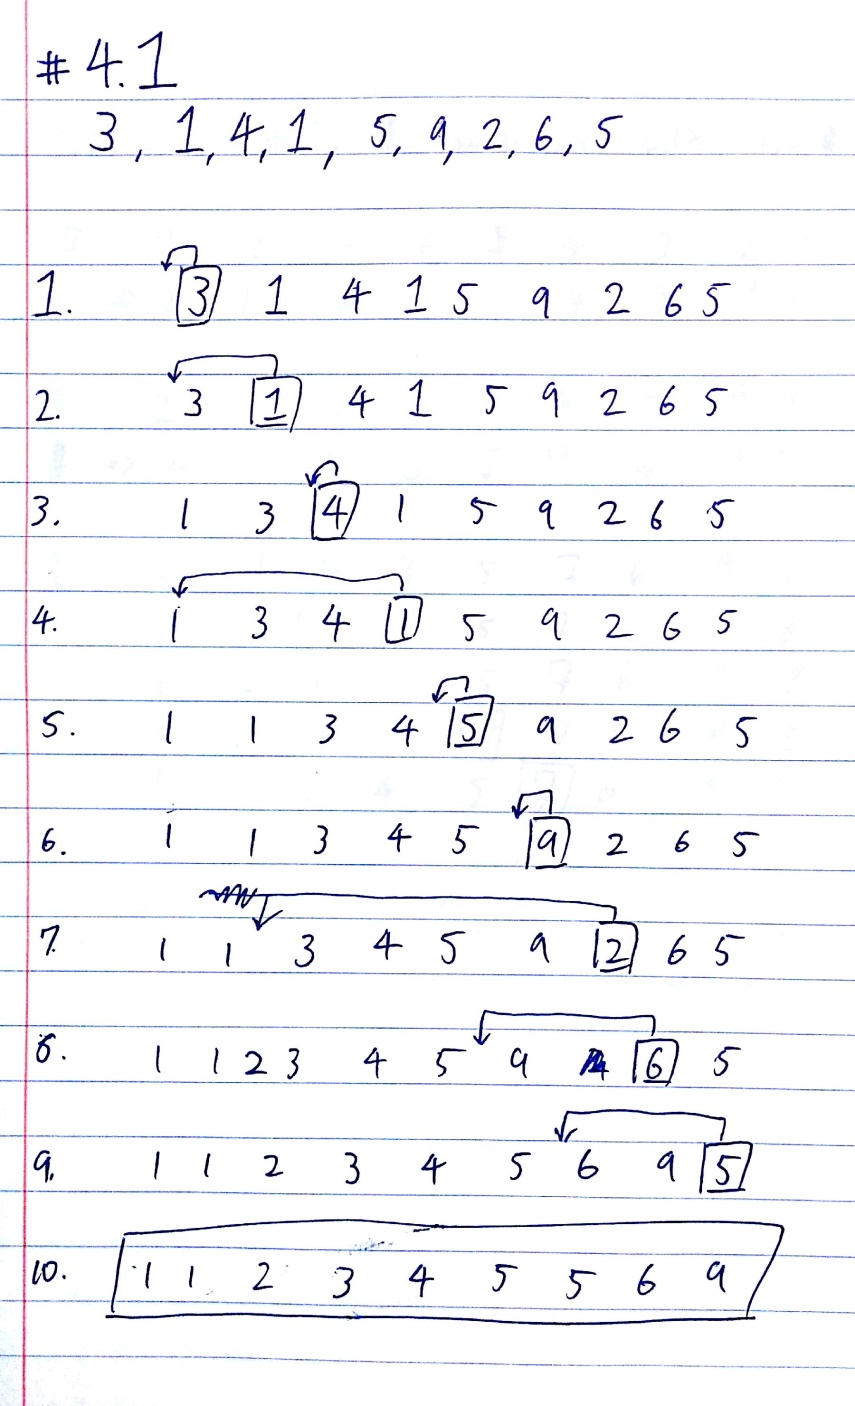 # 4.1
3, 1, 4, 1, 5, 9, 2, 6, 5
1. 3 1 4 1 5 9 2 6 5
2. 3 1 4 1 5 9 2 6 5
3. 1 3 4 1 5 9 2 6 5
4. 1 3 4 1 5 9 2 6 5
5. 1 1 3 4 5 9 2 6 5
6. 1 1 3 4 5 9 2 6 5
7. 1 1 3 4 5 9 2 6 5
8. 1 1 2 3 4 5 9 6 5
9. 1 1 2 3 4 5 6 9 5
10. 1 1 2 3 4 5 5 6 9